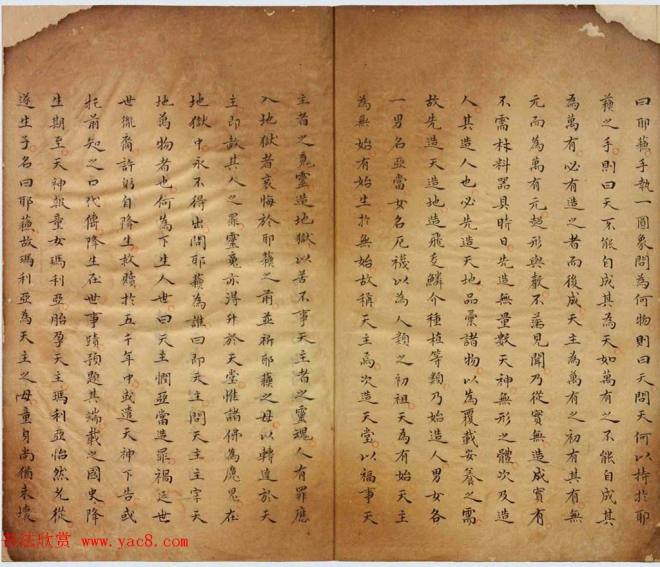 曰耶蘓手執一圓象問為何物則曰天問天何以持扵耶
蘓之手則曰天不能自成其為天如萬有之不能自成其
為萬有必有造之者而後成天主為萬有之初有其有無
元而為萬有元超形與數不落見聞乃從實無造成實有
不需材料器具時日先造無量數天神無形之體次及造
人其造人也必先造天地品彙諸物以為覆載安養之需
故先造天造地造飛走鱗介種植等類乃始造人男女各
一男名亞當女名厄襪以為人類之初祖天為有始天主
為無始有始生扵無始故稱天主焉次造天堂以福事天
主者之靈魂造地獄以苦不事天主者之靈魂人有罪應
入地獄者哀悔於耶蘓之前並祈耶蘓之母以轉達於天
主即赦其人之罪靈魂亦得升於天堂惟諸佛為魔鬼在
地獄中永不得出問耶蘓為誰曰即天主問天主主宰天
地萬物者也何為下生人世曰天主憫亞當造罪禍延世
世胤裔許躬自降生救贖扵五千年中或遣天神下告或
托前知之口代傳降生在世事蹟預題其端載之國史降
生期至天神報童女瑪利亞胎孕天主瑪利亞怡然允從
遂生子名曰耶蘓故瑪利亞為天主之母童身尚猶未壞
书法欣赏 www.yac8.com